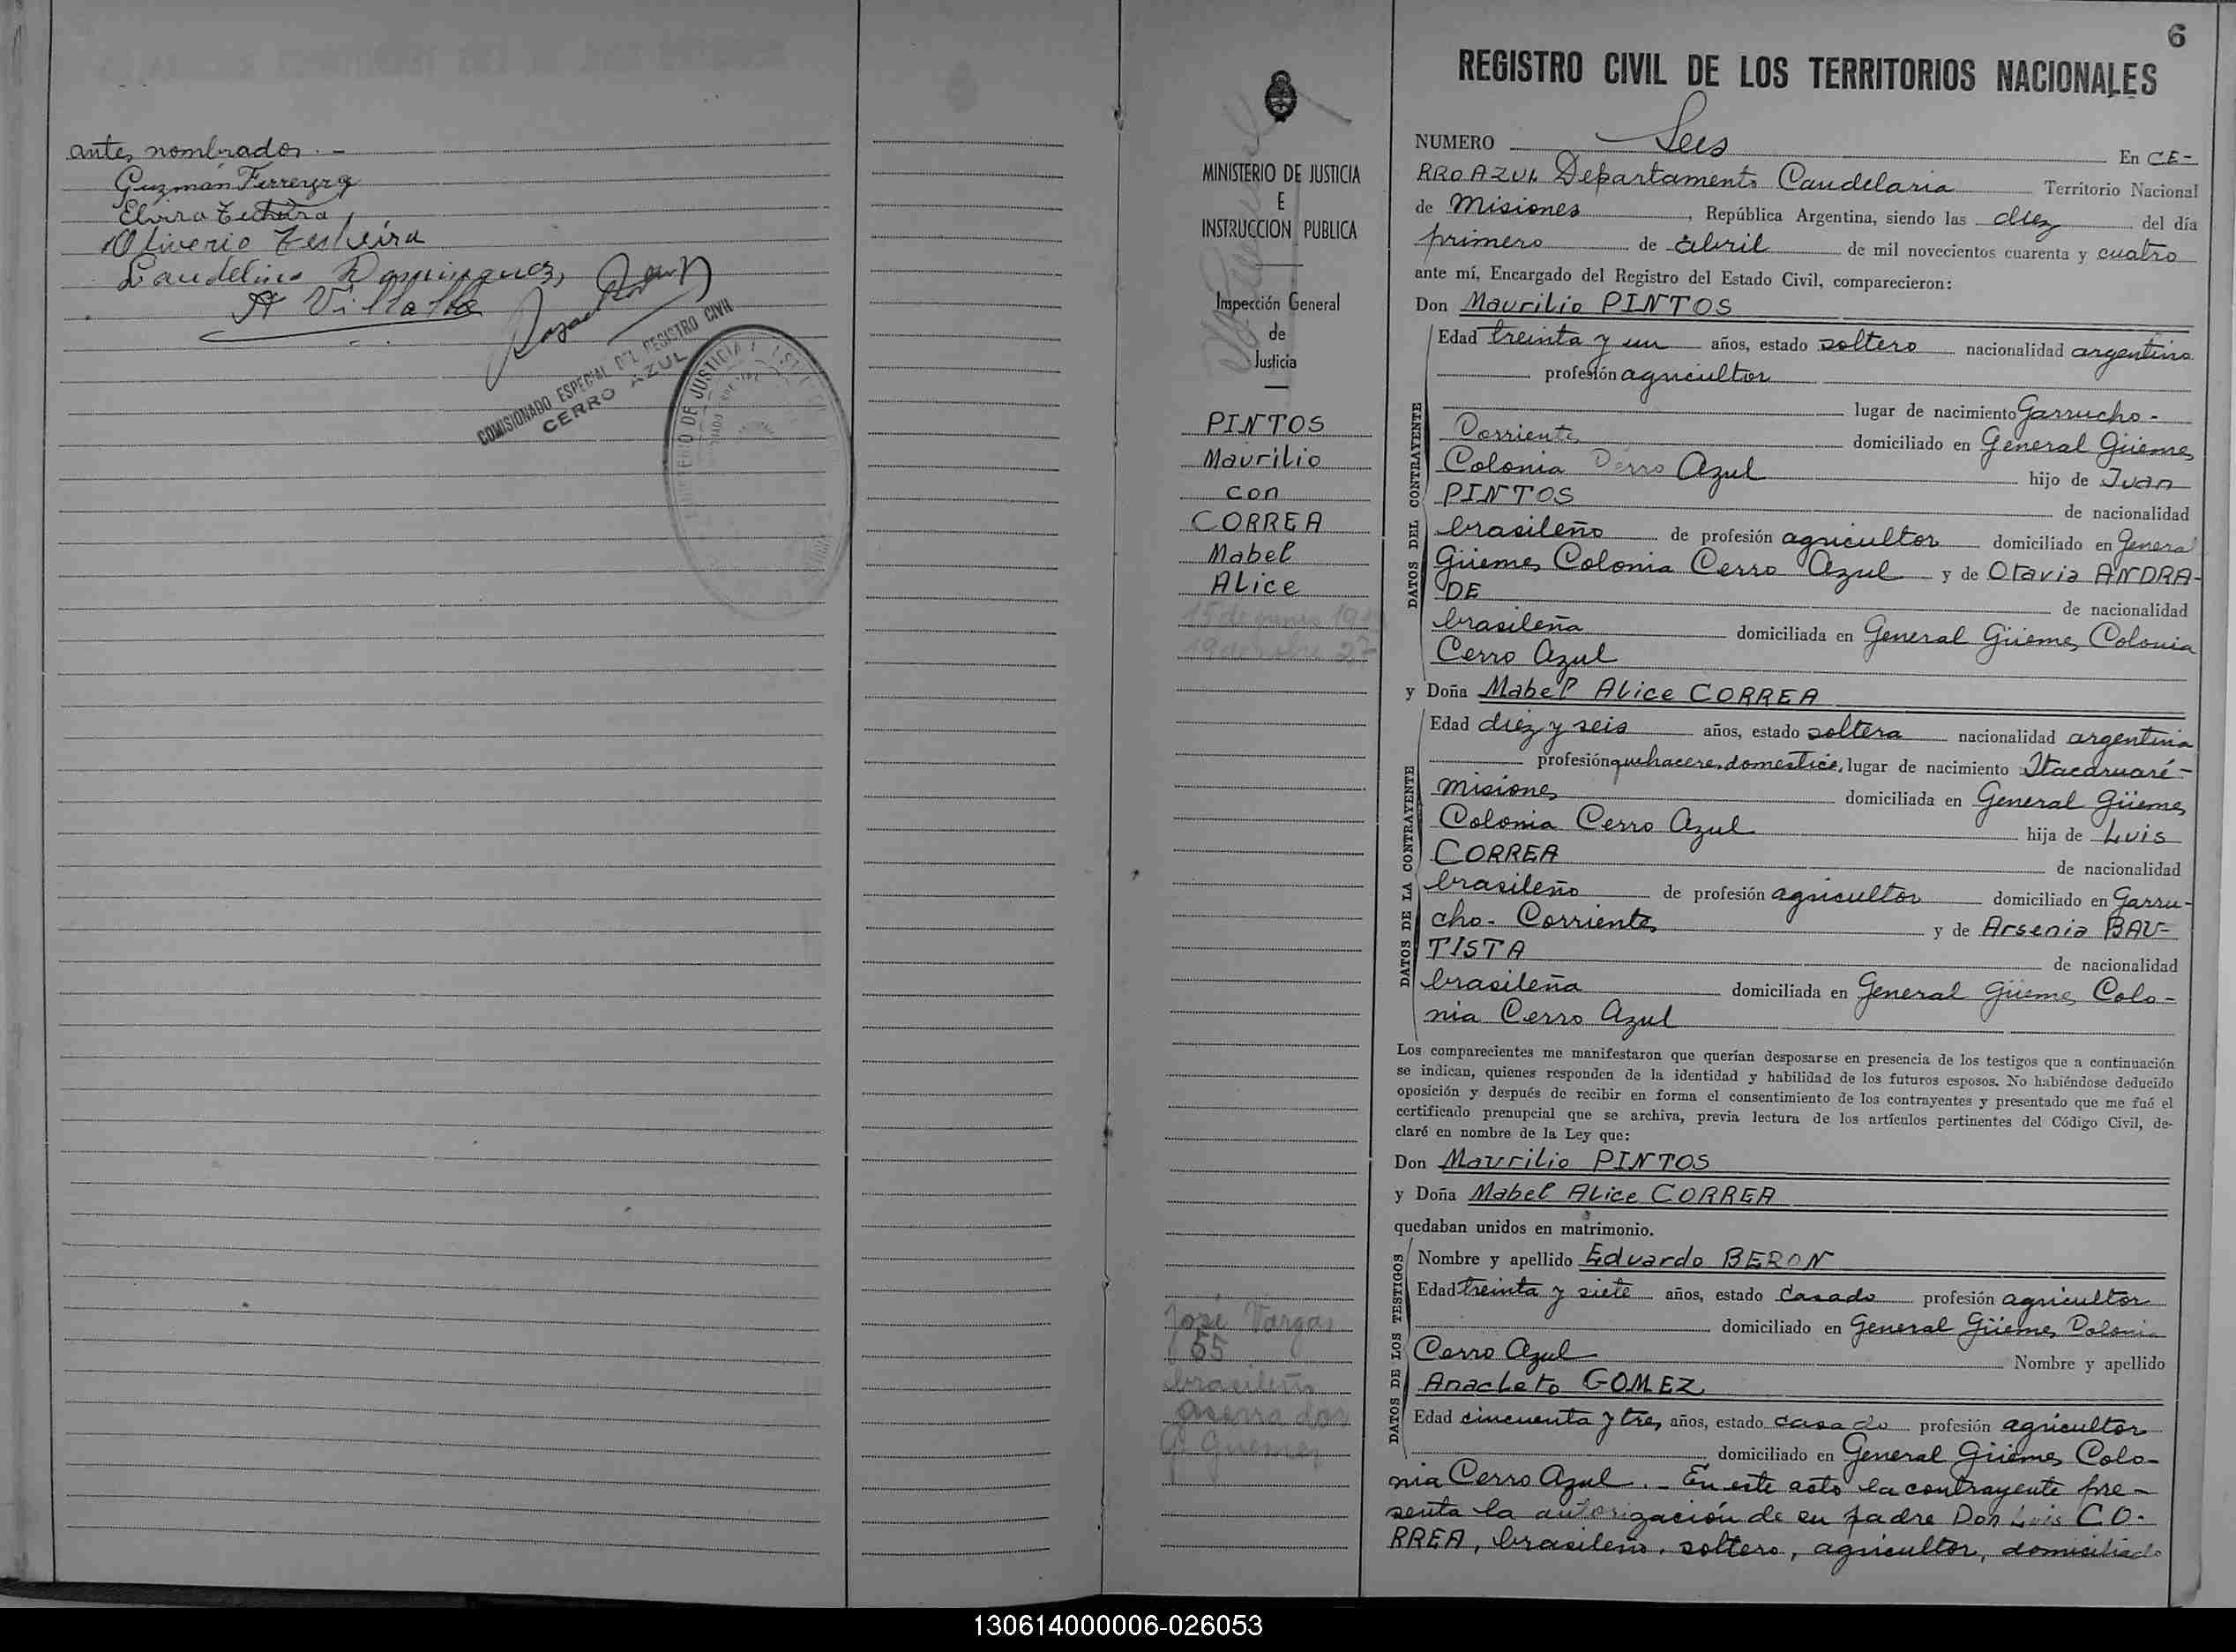 antes nombrados. -
Guzmán Ferreyra
Elvira
Oliverio Tesheira
Laudelino Dominguez
A Villalba
COMISIONADO ESPECIAL DEL REGISTRO CIVIL
CERRO AZUL
DE JUSTICIA
MINISTERIO DE JUSTICIA
E
INSTRUCCION PUBLICA
Inspección General
de
Justicia
PINTOS
Maurilio
con
CORREA
Mabel
ALice
15 de 19
19 de 27
José Vargas
55
brasileño
aserrador
G. Guemes
6
REGISTRO CIVIL DE LOS TERRITORIOS NACIONALES
NUMERO Seis En CE-
RRO AZUL Departamento Candelaria Territorio Nacional
de Misiones, República Argentina, siendo las diez del día
primero de abril de mil novecientos cuarenta y cuatro
ante mí, Encargado del Registro del Estado Civil, comparecieron:
Don Maurilio PINTOS
Edad treinta y un años, estado soltero nacionalidad argentino
profesión agricultor
lugar de nacimiento Garrucho-
Corrientes domiciliado en General Güemes
Colonia Cerro Azul hijo de Juan
PINTOS de nacionalidad
brasileño de profesión agricultor domiciliado en General
Güemes Colonia Cerro Azul y de Otavia ANDRA-
DE de nacionalidad
brasileña domiciliada en General Güemes Colonia
Cerro Azul
DATOS DEL CONTRAYENTE
y Doña Mabel ALice CORREA
Edad diez y seis años, estado soltera nacionalidad argentina
profesión quehaceres domestico, lugar de nacimiento Itacaruaré-
Misiones domiciliada en General Güemes
Colonia Cerro Azul hija de Luis
CORREA de nacionalidad
brasileño de profesión agricultor domiciliado en Garru-
cho- Corrientes y de Arsenia BAU-
TISTA de nacionalidad
brasileña domiciliada en General Güemes Colo-
nia Cerro Azul
DATOS DE LA CONTRAYENTE
Los comparecientes me manifestaron que querían desposarse en presencia de los testigos que a continuación
se indican, quienes responden de la identidad y habilidad de los futuros esposos. No habiéndose deducido
oposición y después de recibir en forma el consentimiento de los contrayentes y presentado que me fué el
certificado prenupcial que se archiva, previa lectura de los artículos pertinentes del Código Civil, de-
claré en nombre de la Ley que:
Don Maurilio PINTOS
y Doña Mabel ALice CORREA
quedaban unidos en matrimonio.
Nombre y apellido Eduardo BERON
Edad treinta y siete años, estado casado profesión agricultor
domiciliado en General Güemes Colonia
Cerro Azul Nombre y apellido
Anacleto GOMEZ
Edad cincuenta y tres años, estado casado profesión agricultor
domiciliado en General Güemes Colo-
DATOS DE LOS TESTIGOS
nia Cerro Azul. - En este acto la contrayente pre-
senta la autorización de su padre Don Luis CO-
RREA, brasileño, soltero, agricultor, domiciliado
130614000006-026053